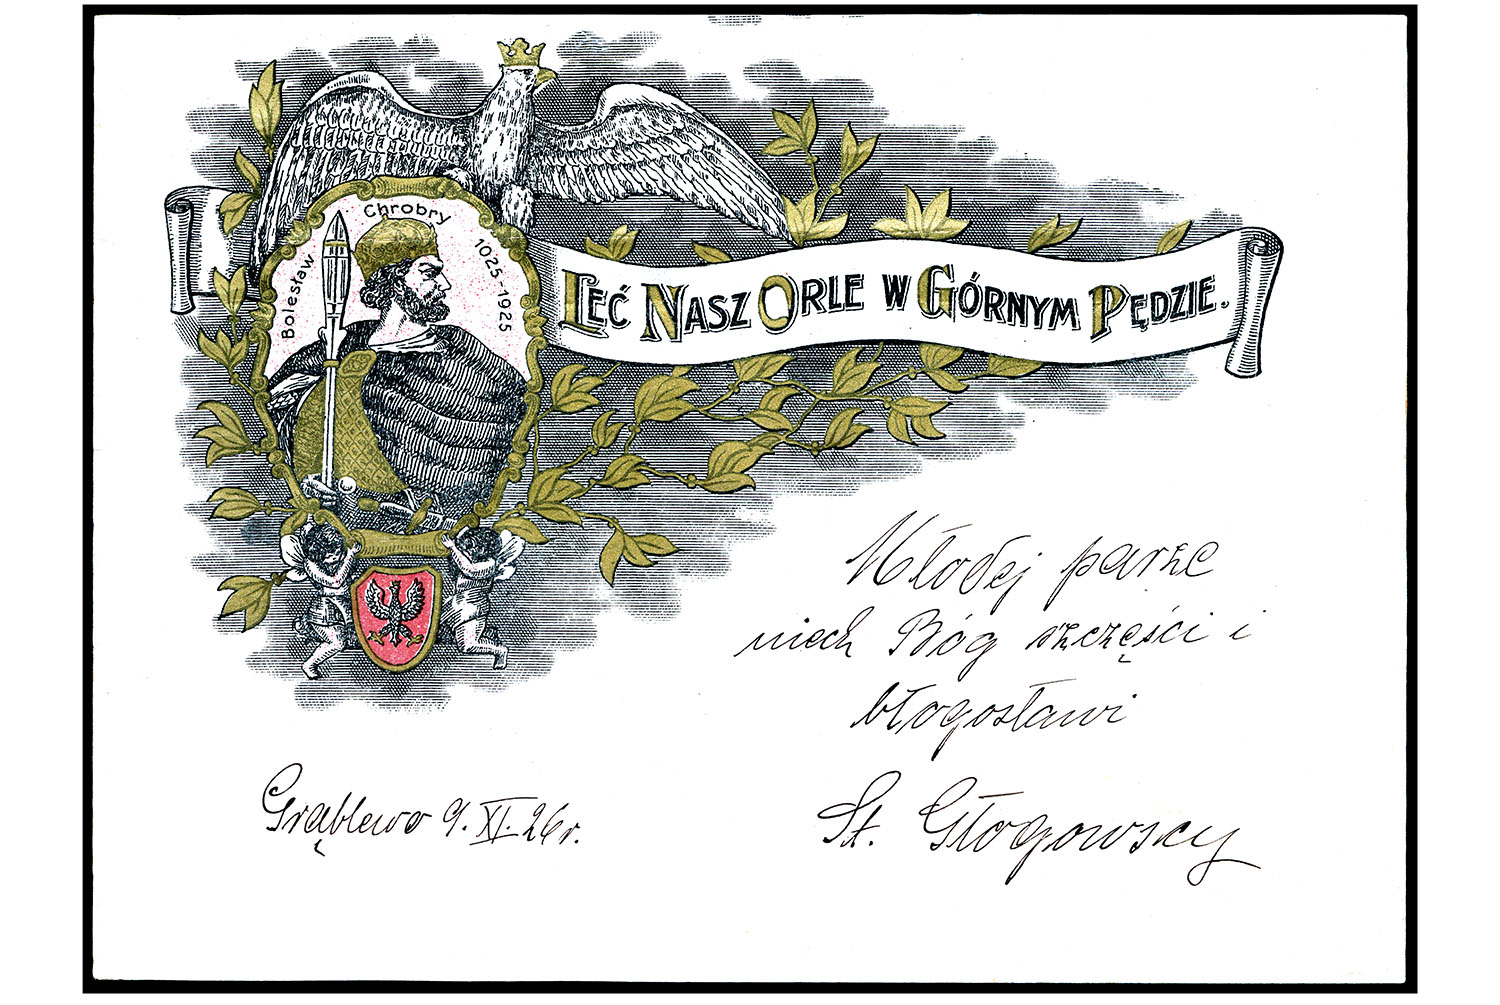 Bolesław Chrobry 1025-1925
Leć Nasz Orle w Górnym Pędzie.
Młodej parze
niech Bóg szczęści i
błogosławi
Grąblewo 9. XI. 26 r.
St. Głogowscy